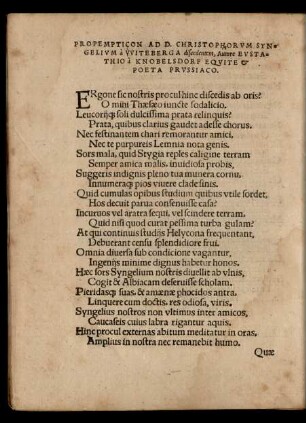 PROPEMPTICON AD D. CHRISTOPHORVM SYN-
GELIVM à VVITEBERGA discedentem, Autore EVSTA-
THIO à KNOBELSDORF EQVITE &
POETA PRVSSIACO.
ERgone sic nostris procul hinc discedis ab oris?
O mihi Thæsæo iuncte sodalicio.
Leucorijq; soli dulcissima prata relinquis?
Prata, quibus clarius gaudet adesse chorus.
Nec festinantem chari remorantur amici,
Nec te purpureis Lemnia nota genis.
Sors mala, quid Stygia reples caligine terram
Semper amica malis, inuidiosa probis,
Suggeris indignis pleno tua munera cornu,
Innumeraq; pios viuere clade sinis.
Quid cumulas opibus studium quibus vtile sordet,
Hos decuit parua consenuisse casa?
Incuruos vel aratra sequi, vel scindere terram.
Quid nisi quod curat pessima turba gulam?
At qui continuis studijs Helycona frequentant,
Debuerant censu splendidiore frui.
Omnia diuersa sub conditione vagantur,
Ingenijs minime dignus habetur honos.
Hæc sors Syngelium nostris diuellit ab vlnis,
Cogit & Albiacam deseruisse scholam.
Pieridasq; suas, & amænæ phocidos antra
Linquere cum doctis, res odiosa, viris.
Syngelius nostros non vltimus inter amicos,
Caucaseis cuius labra rigantur aquis.
Hinc procul externas abitum meditatur in oras,
Amplius in nostra nec remanebit humo.
Quæ